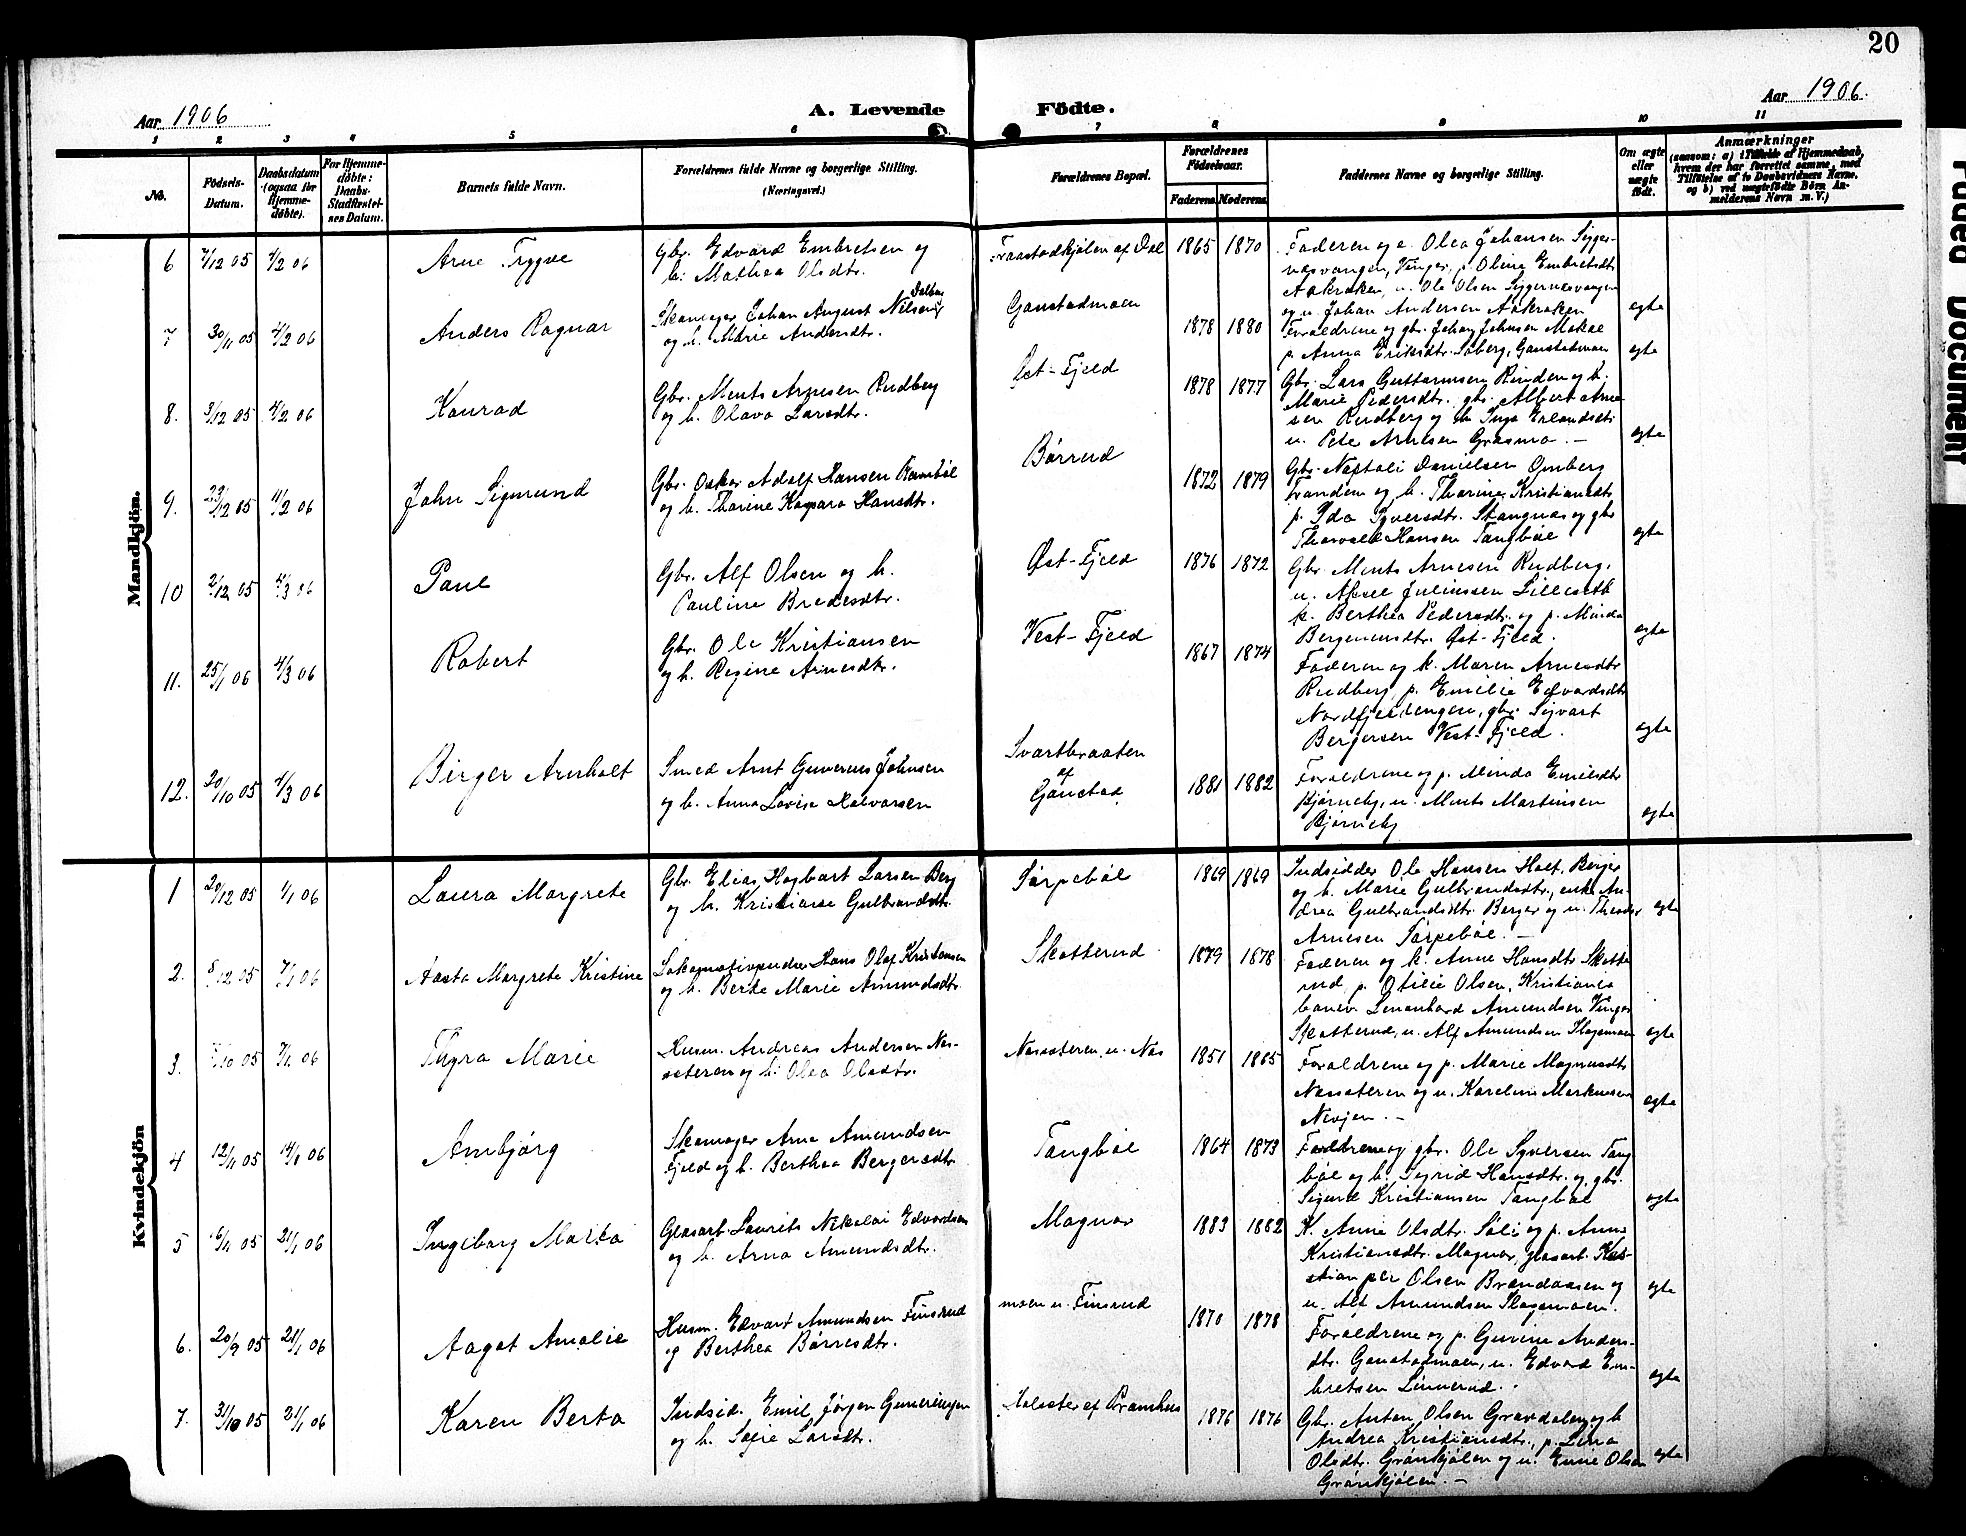 20
Aar 1906
A. Levende Födte.
Aar 1906.
1 2 3 4 5 6 7 8 9 10 11
No.
Födsels-Datum.
Daabsdatum (ogsaa for Hjemmedøbte).
For Hjemmedøbte: Daabs-Stadfæstelses Datum.
Barnets fulde Navn.
Forældrenes fulde Navne og borgerlige Stilling.
(Næringsvei.)
Forældrenes Bopæl.
Forældrenes Födselsaar.
Faderens. Moderens.
Faddernes Navne og borgerlige Stilling.
Om ægte eller uægte født.
Anmærkninger
(saasom: a) Tilfælde af Hjemmedaab, hvem der har forrettet samme, med Tilføielse af to Daabsvidners Navne, og b) ved uægtefødte Børn Anmelderens Navn m. V.)
Mandkjön.
6 7/12 05 4/2 06 Arne Trygve
Gbr. Edvard Embretsen og
h. Mathea Olsdtr.
Fraastadkjølen af Dal 1865 1870
Faderen og e. Olea Johansen Sigger-
næsvangen, Vinger, p. Oline Embretsdtr
Aakraken, u. Ole Olsen Siggernæsvangen
og u. Johan Andersen Aakraken
egte
7 30/11 05 4/2 06 Anders Ragnar
Skomager Johan August Nilsen Dalbye
og h. Marie Andersdtr.
Gaustadmoen 1878 1880
Forældrene og gbr. Johan Johnsen
p. Anna Eriksdtr. Søberg, Gaustadmoen
egte
8. 3/12 05 4/2 06 Konrad
Gbr. Ments Arnesen Rudberg
og h. Olava Larsdtr.
Øst-Fjeld 1878 1877
Gbr. Lars Guttormsen Rinden og h.
Marie Pedersdtr. gbr. Albert Arne-
sen Rudberg og h. Inga Erlandsdtr
u. Peter Arnesen Grasmo. –
egte
9. 23/12 05 4/2 06 John Sigmund
Gbr. Oskar Adolf Hansen
og h. Thorine Kaspara Hansdtr.
Børrud 1872 1879
Gbr. Naftali Danielsen Omberg
Tranden og h. Thorine Kristiansdtr
p. Ida Syversdtr. Stangnæs og gbr
Thorvald Hansen Tangbøl
egte
10 2/12 05 4/3 06 Paul
Gbr. Alf Olsen og h.
Pauline Bredesdtr.
Øst-Fjeld 1876 1872
Gbr. Ments Arnesen Rudberg,
u. Aksel Juliussen Lilleseth
k. Berthea Pedersdtr. og p. Minda
Bergersensdtr. Øst-Fjeld.
egte
11. 25/1 06 4/3 06 Robert
Gbr. Ole Kristiansen
og h. Regine Arnesdtr.
Vest-Fjeld 1867 1874
Faderen og k. Maren Arnesdtr
Rudberg, p. Emilie Edvardsdtr
Nordfjeldengen, gbr. Sigvart
Bergersen Vest-Fjeld.
egte
12. 20/10 05 4/3 06 Birger Arnholt
Smed Arnt Gunerius Johnsen
og h. Anna Lovise Halvorsen
Svartbraaten
af
Gaustad 1881 1882
Forældrene og p. Minda Emilsdtr
Bjørneby, u. Ments Martinsen
Bjørneby
egte
Kvindekjön
1 20/12 05 1/1 06 Laura Margrete
Gbr. Elias Hagbart Larsen Berg
og h. Kristianse Gulbrandsdtr.
Tørpebøl 1869 1869
Indsidder Ole Hansen Holt, Berger
og h. Marie Gulbrandsdtr, enke An-
drea Gulbrandsdtr. Berger og u. Theodor
Arnesen Tørpebøl. –
egte
2. 8/12 05 7/1 06 Aasta Margrete Kristine
Lokomotivpudser Hans Olaf Kristiansen
og h. Berte Marie Amundsdtr.
Skotterud 1879 1878
Faderen og k. Anne Hansdtr. Skotte
rud, p. Otilie Olsen, Kristiania
banev. Leonhard Amundsen Vinger
Skotterud, u. Alf Amundsen Slagsmoen
egte
3. /10 05 7/1 06 Thyra Marie
Husm. Andreas Andersen Næs-
sæteren og h. Olea Olsdtr.
Næssæteren, u. Næs 1851 1865
Forældrene og p. Marie Magnusdtr
Næssæteren og u. Karelius Markussen
Nevjen. –
egte
4 12/11 05 14/1 06 Arnbjørg
Skomager Arne Amundsen
Fjeld og h. Berthea Bergersdtr.
Tangbøl 1864 1873
Forældrene og gbr. Ole Syversen Tang
bøl og h. Sigrid Hansdtr. og gbr.
Sigurd Kristiansen Tangbøl
egte
5 16/11 05 21/1 06 Ingeborg Marta
Glasarb. Laurits Nikolai Edvardsen
og h. Arna Amundsdtr.
Magnor 1883 1882
K. Anne Olsdtr. Sæli og p. Anna
Kristiansdtr. Magnor, glasarb. Kri-
stian Olsen Brændaasen og
u. Alf Amundsen Slagsmoen.
egte
6. 20/9 05 21/1 06 Aagot Amalie
Husm. Edvart Amundsen Finsrud
og Berthea Børresdtr.
moen u. Finsrud 1870 1878
Forældrene og p. Gurine Anders-
dtr. Gaustadmoen, u. Edvard Em-
bretsen Linnerud.
egte
7. 31/10 05 21/1 06 Karen Berta
Indsid. Emil Jørgen Guneriusen
og h. Sofie Larsdtr.
1876 1876
Gbr. Anton Olsen Gravdalen og h
Andrea Kristiansdtr, p. Lina
Olsdtr. Grønkjølen og u. Enne Olsen
Grønkjølen. –
egte
Faded Document